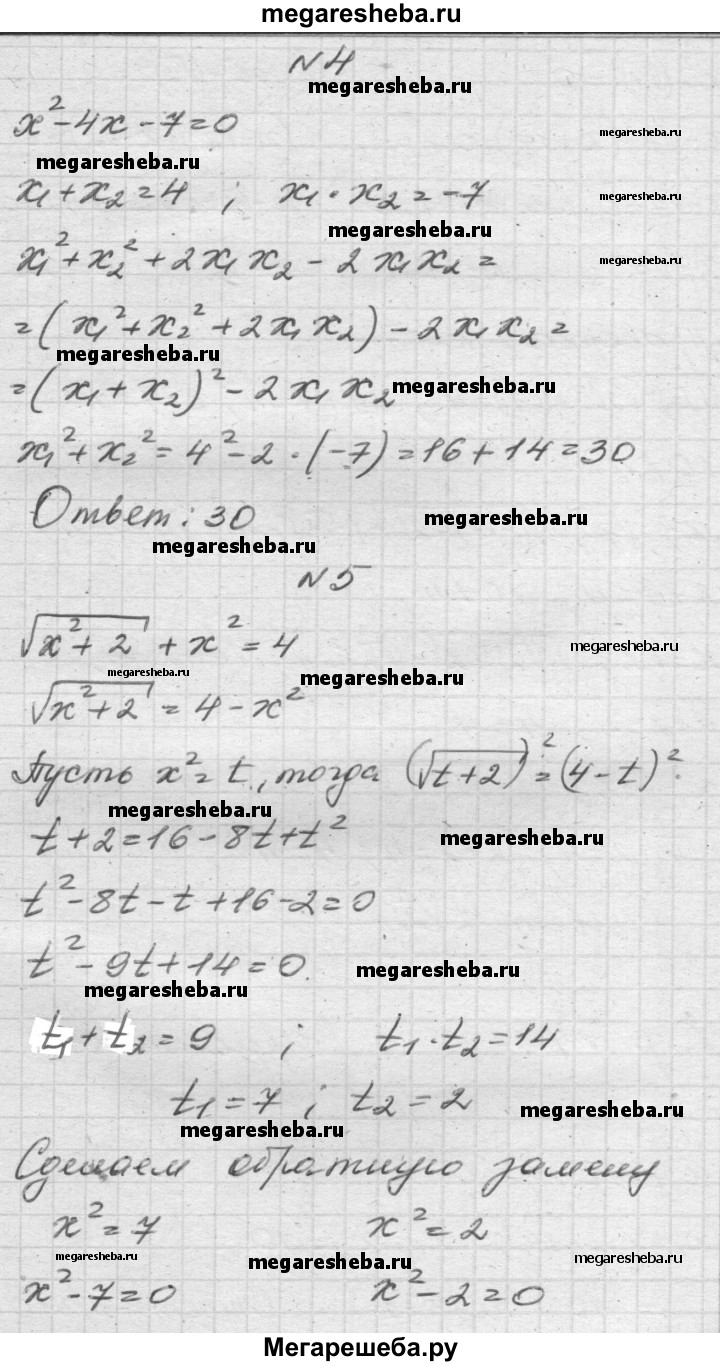 megaresheba.ru
N4
megaresheba.ru
x²-4x-7=0
megaresheba.ru
megaresheba.ru
x₁+x₂=4 ; x₁·x₂=-7
megaresheba.ru
megaresheba.ru
x₁²+x₂²+2x₁x₂-2x₁x₂=
megaresheba.ru
=(x₁²+x₂²+2x₁x₂)-2x₁x₂=
megaresheba.ru
=(x₁+x₂)²-2x₁x₂
megaresheba.ru
x₁²+x₂²=4²-2·(-7)=16+14=30
Ответ: 30
megaresheba.ru
megaresheba.ru
N5
√(x²+2)+x²=4
megaresheba.ru
megaresheba.ru
megaresheba.ru
√(x²+2)=4-x²
Пусть x²=t, тогда (√(t+2))²=(4-t)².
megaresheba.ru
t+2=16-8t+t²
megaresheba.ru
t²-8t-t+16-2=0
t²-9t+14=0.
megaresheba.ru
megaresheba.ru
t₁+t₂=9 ; t₁·t₂=14
t₁=7 ; t₂=2
megaresheba.ru
megaresheba.ru
Сделаем обратную замену
x²=7 x²=2
megaresheba.ru
megaresheba.ru
megaresheba.ru
x²-7=0 x²-2=0
Мегарешеба.ру